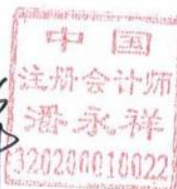 中国
注册会计师
潘永祥
320200010022